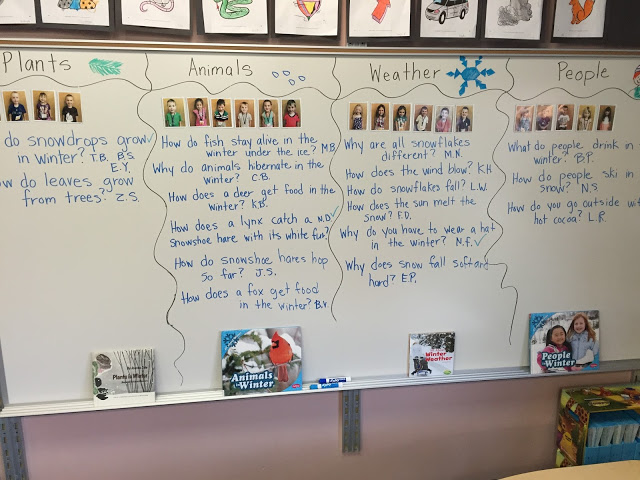 Plants
do snowdrops grow ✓
in winter? T.B. B.S.
E.Y.
do leaves grow
from trees? Z.S.
Animals
How do fish stay alive in the
winter under the ice? M.B.
Why do animals hibernate in the
winter? C.B.
How does a deer get food in the
winter? K.B.
How does a lynx catch a N.D ✓
snowshoe hare with its white fur?
How do snowshoe hares hop
so far? J.S.
How does a fox get food
in the winter? B.V
Weather
Why are all snowflakes
different? M.N.
How does the wind blow? K.H
How do snowflakes fall? L.W.
How does the sun melt the
snow? F.D.
Why do you have to wear a hat
in the winter? N.F. ✓
Why does snow fall soft and
hard? E.P.
People
What do people drink in
winter? B.P.
How do people ski in
snow? N.S
How do you go outside wit
hot cocoa? L.R.
Plants in Winter
Animals
in Winter
Winter
Weather
People
in Winter